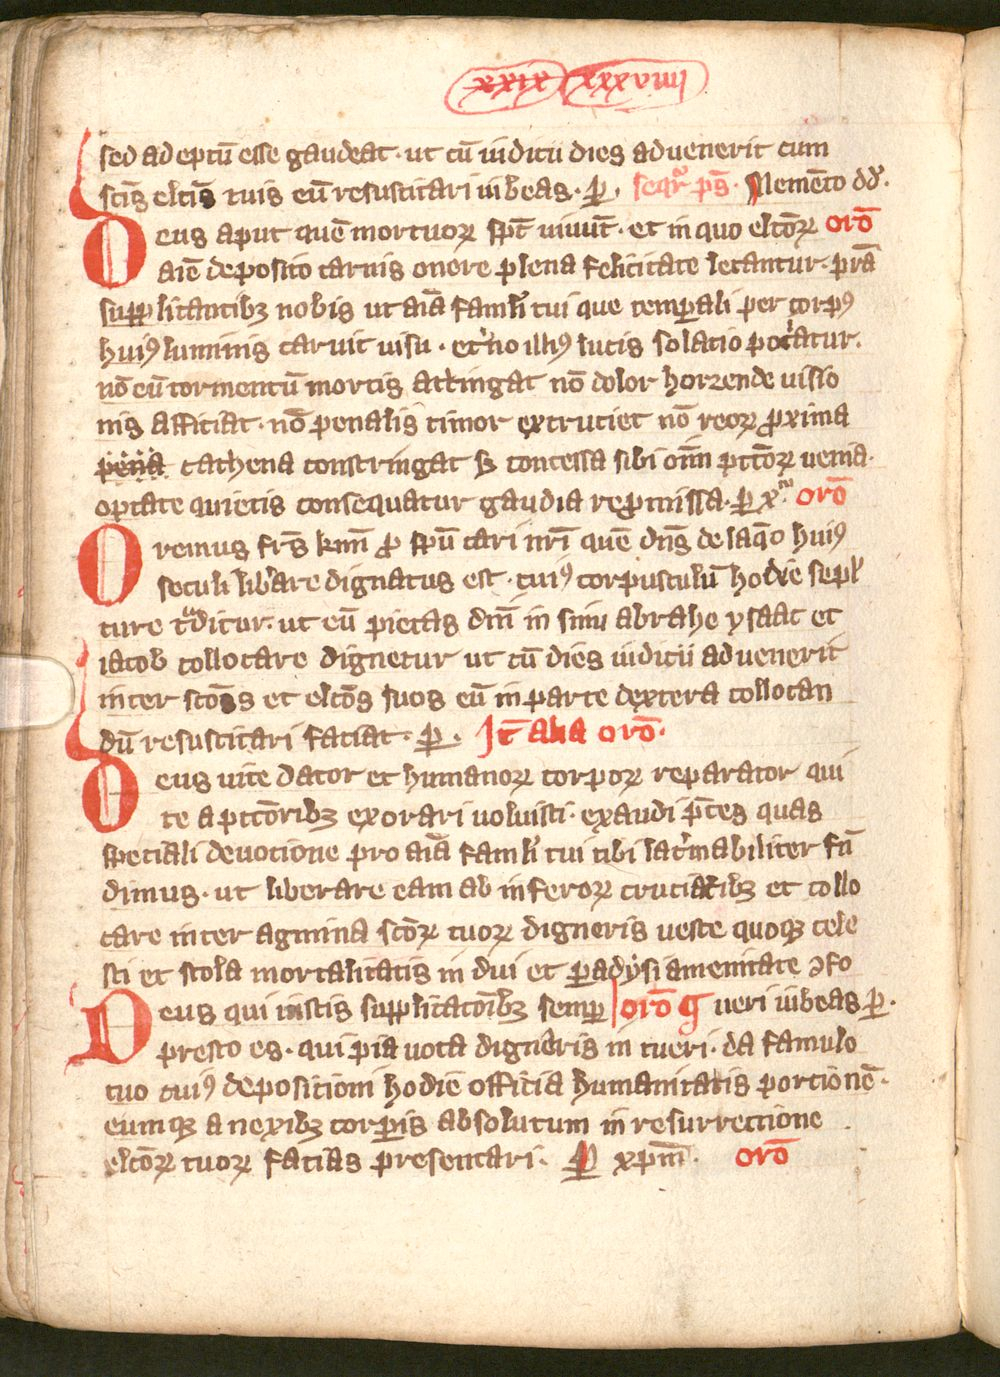 xxix xxxviiii
sed adeptū esse gaudeat · ut cū iudicii dies advenerit cum
scīs elcīs tuis eū resuscitari iubeas · ꝑ. seqr̄ ps̄ · Memēto dd̄.
Deus aput quē mortuoꝝ spt̄ uiuūt · et in quo elcōꝝ orō
aīe deposito carnis onere plena felicitate letantur · prā
supplicantibꝫ nobis ut aīa famłi tui que temꝑali per corpꝰ
huiꝰ luminis caruit uisu · etno illiꝰ lucis solatio pociatur.
nō eū tormentū mortis attingat nō dolor horrende uisio
nis afficiat · nō penalis timor excruciet nō reoꝝ ꝓxima
pena cathena constringat sꝫ concessa sibi oīm pccōꝝ uenia ·
optate quietis consequatur gaudia reꝓmissa · ꝑ xm orō
Oremus frs̄ km̄ ꝓ spū cari nrī quē dn̄s de laq̄o huiꝰ
seculi libare dignatus est · cuiꝰ corpusculū hodie sepl
ture tditur · ut eū pietas dnī in sinu abrahe ysaac et
iacob collocare dignetur ut cū dies iudicii advenerit
inter scōs et elcōs suos eū in parte dextera collocan
dū resuscitari faciat · ꝑ. It̄ alia orō ·
Deus uite dator et humanoꝝ corpoꝝ reparator qui
te a pccōribꝫ exorari uoluisti · exaudi p̄ces quas
speciali deuotione pro aīa famłi tui tibi lacmabiliter fū
dimus · ut liberare eam ab inferoꝝ cruciatibꝫ et collo
care inter agmina scōꝝ tuoꝝ digneris ueste quoqꝫ cele
sti et stola mortalitatis indui et ꝑadysi amenitate ꝯfo
Deus qui iustis supplicatōibꝫ semꝑ orō ueri iubeas ꝑ.
presto es · qui pia uota digneris intueri · da famulo
tuo cuiꝰ depositioni hodie officia humanitatis portionē ·
eumqꝫ a nexibꝫ corꝑis absolutum in resurrectione
elcōꝝ tuoꝝ facias presentari · ꝑ xpm̄ · orō